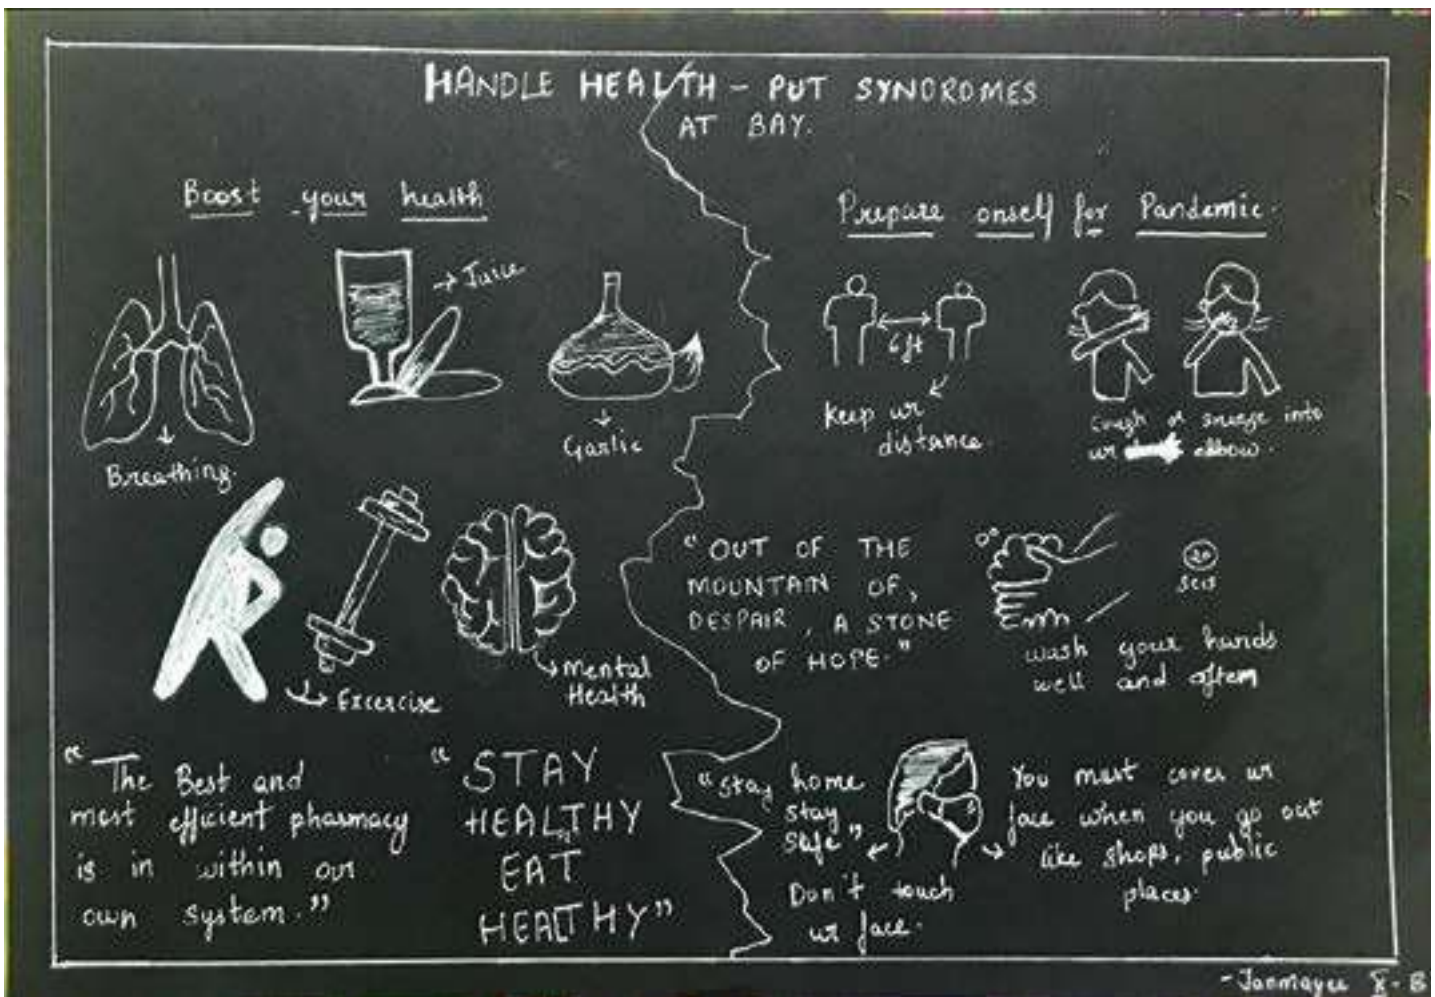 HANDLE HEALTH - PUT SYNDROMES
AT BAY.
Boost your health
→ Juice
Garlic
Breathing.
Excercise
Mental
Health
"The Best and
most efficient pharmacy
is in within our
own system."
"STAY
HEALTHY
EAT
HEALTHY"
Prepare onself for Pandemic.
6ft
Keep ur
distance.
Cough or sneeze into
ur elbow.
"OUT OF THE
MOUNTAIN OF,
DESPAIR, A STONE
OF HOPE."
20
secs
wash your hands
well and often
"Stay home
stay
safe"
Don't touch
ur face.
You must cover ur
face when you go out
like shops, public
places.
- Tanmayee X - B